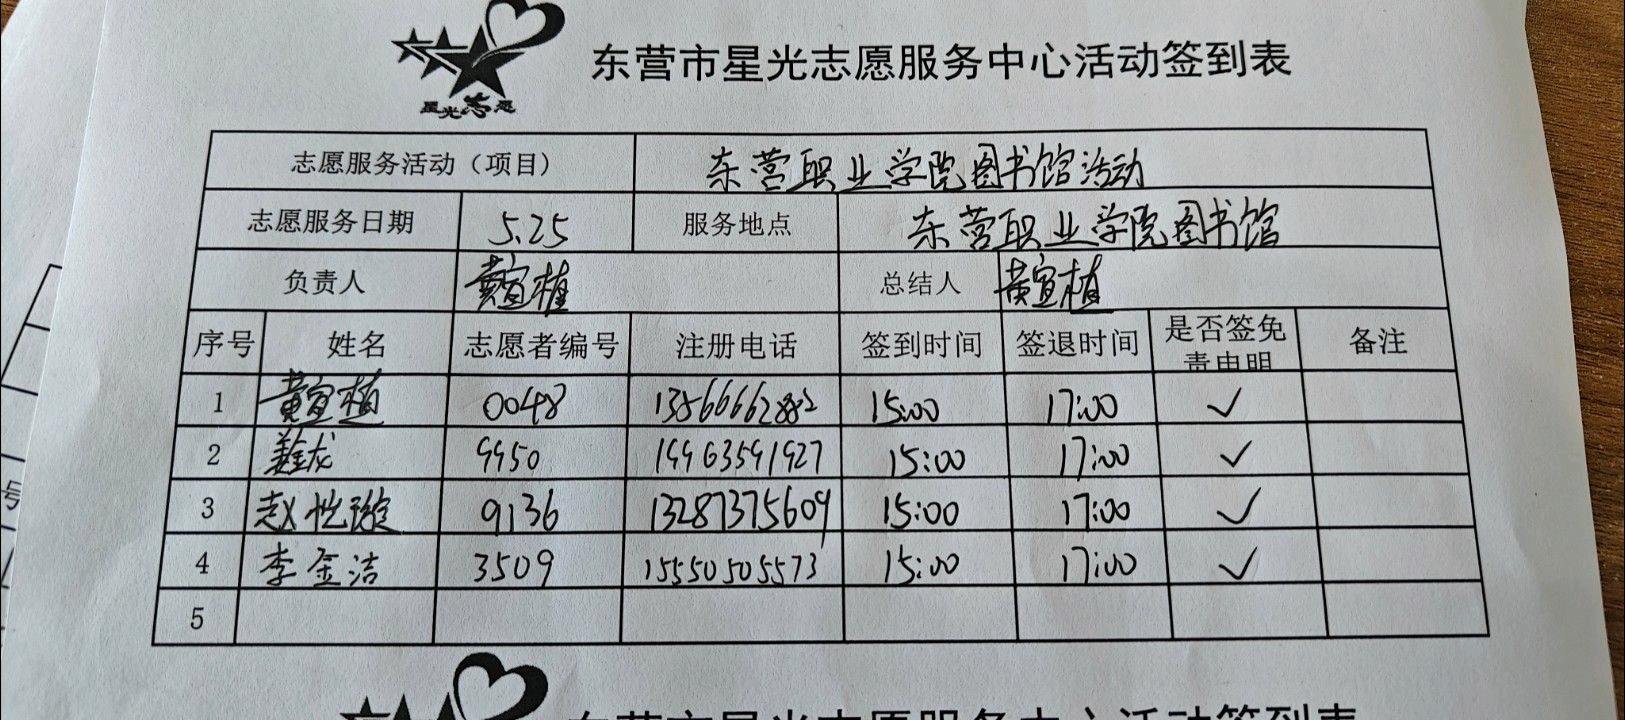 星光志愿
东营市星光志愿服务中心活动签到表
志愿服务活动（项目） 东营职业学院图书馆活动
志愿服务日期 5.25 服务地点 东营职业学院图书馆
负责人 黄宣植 总结人 黄宣植
序号 姓名 志愿者编号 注册电话 签到时间 签退时间 是否签免责申明 备注
1 黄宣植 0048 13566662882 15:00 17:00 ✓
2 9950 19963591927 15:00 17:00 ✓
3 赵 9136 13287375609 15:00 17:00 ✓
4 李金洁 3509 15550505573 15:00 17:00 ✓
5
号
东营市星光志愿服务中心活动签到表